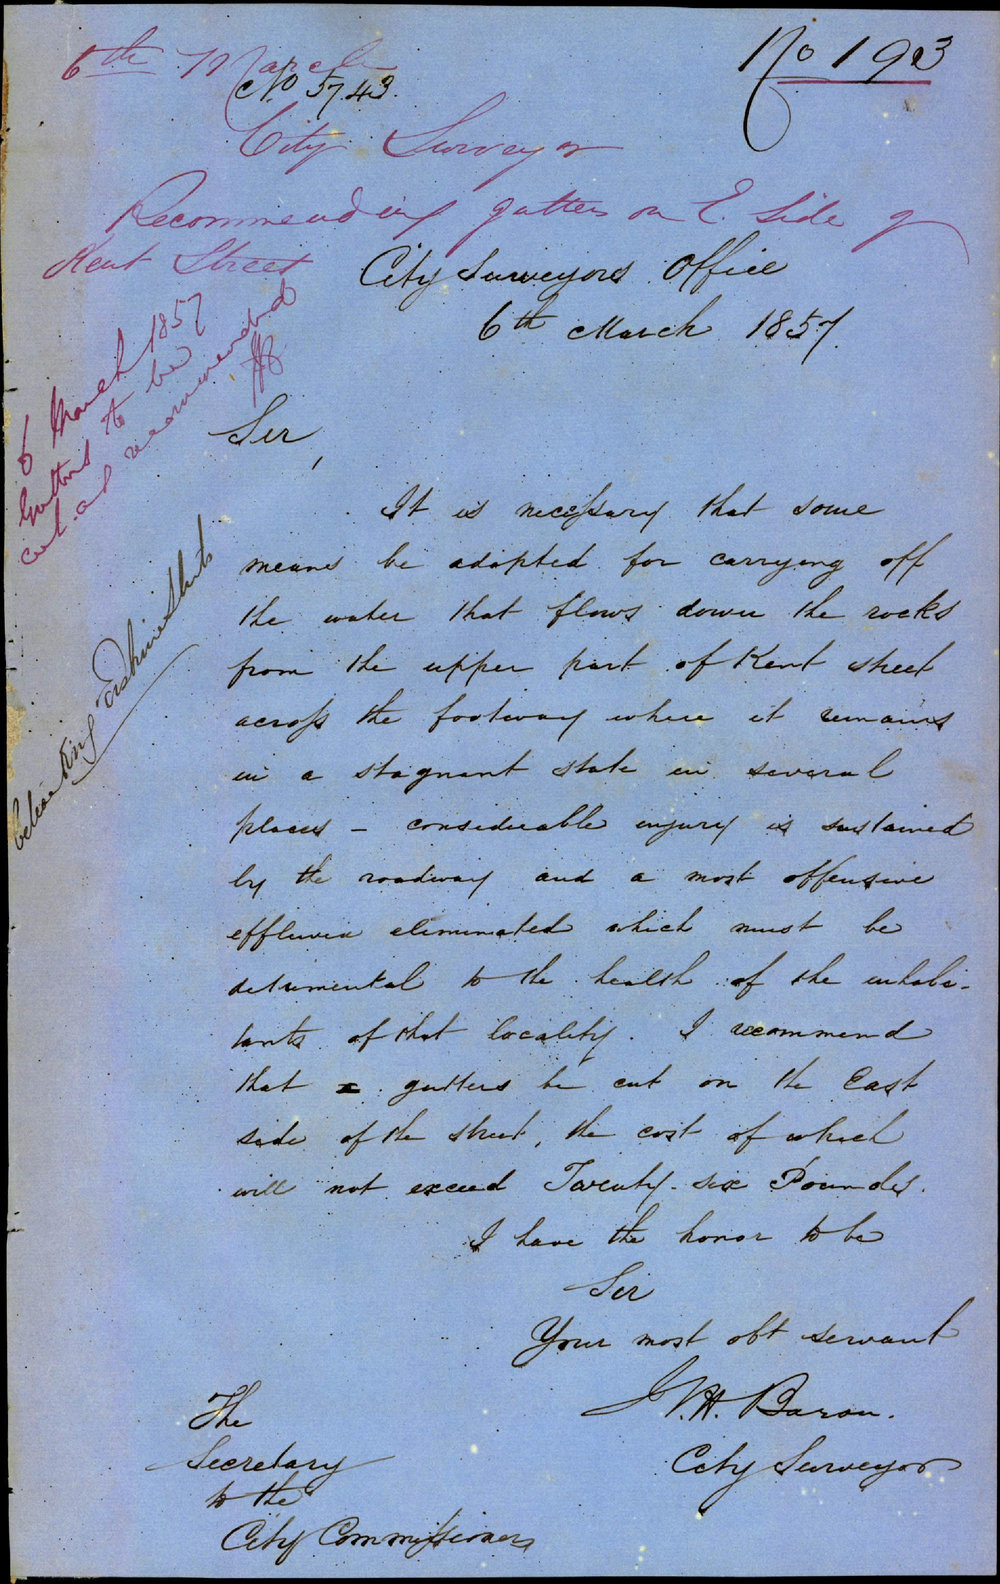 6th March
No 5743.
No 193
City Surveyor
Recommending gutters on E. Side of
Kent Street
City Surveyors Office
6th March 1857.
6 March 1857
Gutters to be
cut as recommended
Sir,
It is necessary that some
means be adopted for carrying off
the water that flows down the rocks
from the upper part of Kent street
across the footway where it remains
in a stagnant state in several
places – considerable injury is sustained
by the roadway and a most offensive
effluvia eliminated which must be
detrimental to the health of the inhabi-
tants of that locality. I recommend
that gutters be cut on the East
side of the street, the cost of which
will not exceed Twenty-six Pounds.
I have the honor to be
Sir
Your most obt servant
City Surveyor
The
Secretary
to the
City Commissioners
King & Erskine Streets